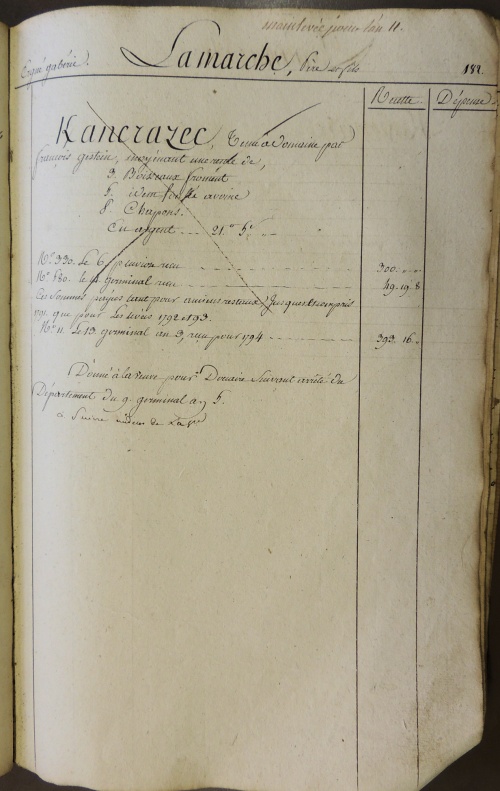 mainlevée pour l'an 11.
Ergué gabéric. Lamarche, Pere et fils 182.
Recette Dépense
Kancrazec, Tenu à Domaine par
françois gestin, moyénant une rente de,
9. Boiseaux froment
5. idem avoine
8. Chapons.
En argent 21.
N.° 330. Le 6. pluviose recu 300.
N.° 580. le germinal recu 49. 19. 8
Les sommes payés tant pour anciens restaux Jusques et compris
1791 que pour les levées 1792 et 1793.
N.° 11. Le 13 germinal an 3, recu pour 1794 393. 16.
Donné à la veuve pour Douaire suivant arrêté du
Département du 9. germinal an 5.
à Suivre